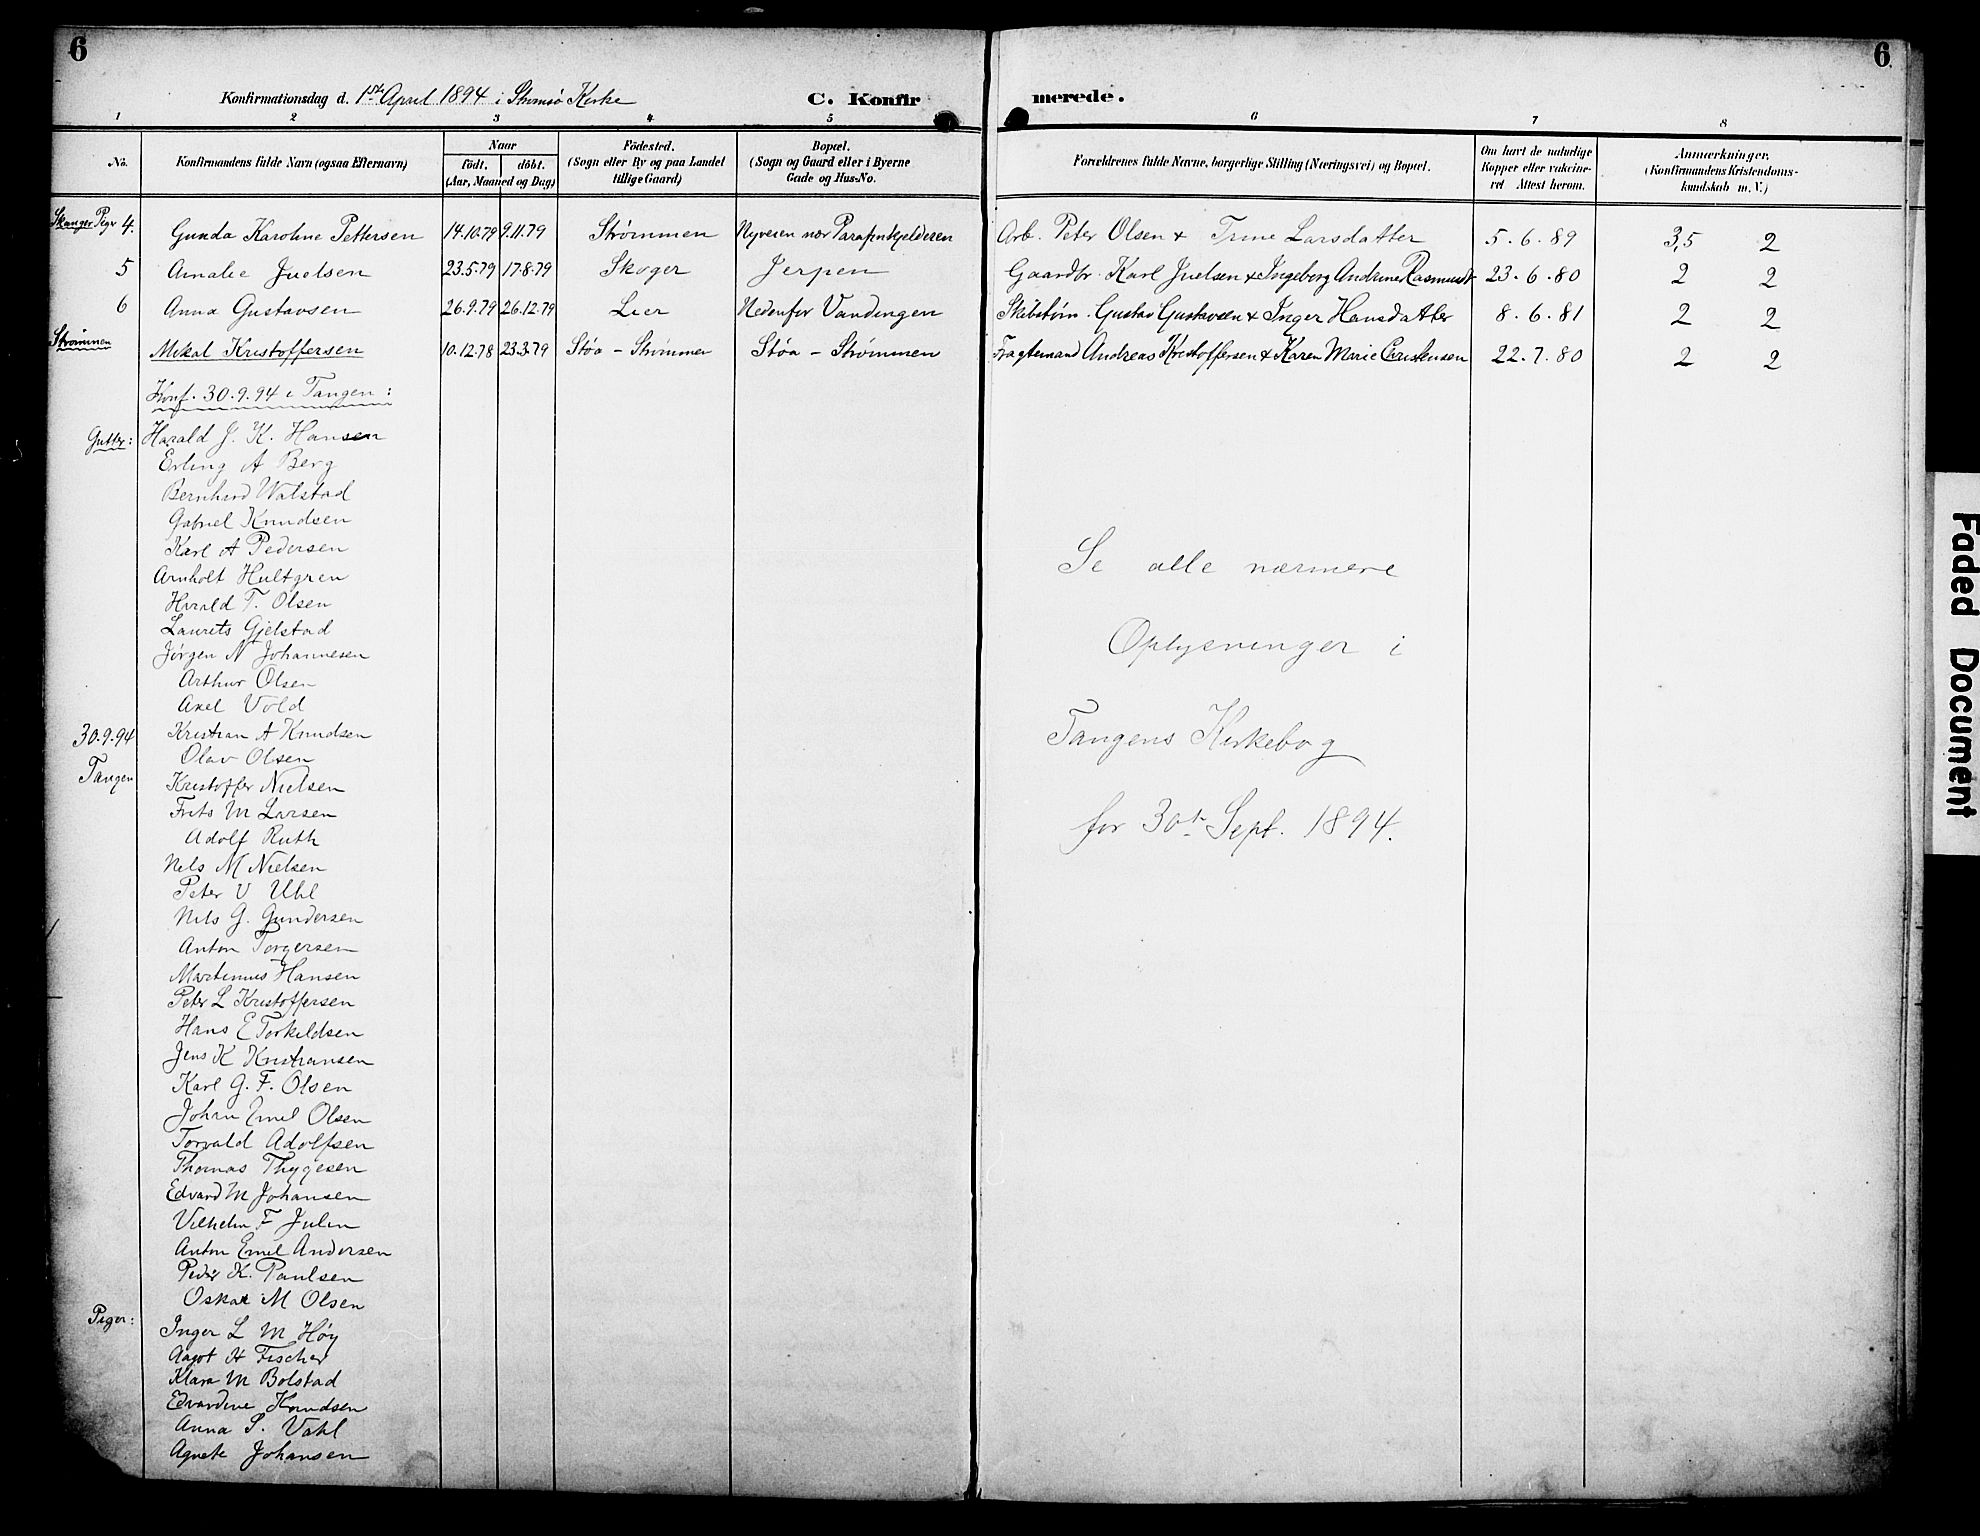 6 6
Konfirmationsdag d. 1ste April 1894 i Strømsø Kirke C. Konfirmerede.
1 2 3 4 5 6 7 8
No. Konfirmandens fulde Navn (ogsaa Efternavn) Naar født. døbt. (Aar, Maaned og Dag) Fødested. (Sogn eller By og paa Landet tillige Gaard) Bopæl. (Sogn og Gaard eller i Byerne Gade og Hus-No. Forældrenes fulde Navne, borgerlige Stilling (Næringsvei) og Bopæl. Om havt de naturlige Kopper eller vakcineret Attest herom. Anmærkninger. (Konfirmandens Kristendomskundskab m. V.)
Skanger Piger 4. Gunda Karoline Pettersen 14.10.79 9.11.79 Strømmen Nyveien nær Parafinkjelderen Arb. Peter Olsen + Trine Larsdatter 5.6.89 3,5 2
5 Amalie Juelsen 23.5.79 17.8.79 Skoger Jerpen Gaardbr. Karl Juelsen + Ingeborg Andrine Rasmusdt 23.6.80 2 2
6 Anna Gustavsen 26.9.79 26.12.79 Lier Nedenfor Vandingen Skibstøm. Gustav Gustavsen + Inger Hansdatter 8.6.81 2 2
Strømmen Mikal Kristoffersen 10.12.78 23.3.79 Støa - Strømmen Støa - Strømmen Fragtemand Andreas Kristoffersen + Karen Marie Christensen 22.7.80 2 2
Konf. 30.9.94 i Tangen:
Gutter: Harald J. K. Hansen
Erling A Berg
Bernhard Walstad
Gabriel Knudsen
Karl A Pedersen
Arnholt Hultgren
Harald T. Olsen
Laurits Gjelstad
Jørgen N Johannesen
Arthur Olsen
Axel Vold
30.9.94 Kristian A Knudsen
Olav Olsen
Tangen Kristoffer Nielsen
Frits M Larsen
Adolf Ruth
Nels M Nielsen
Peter V Uhl
Nils G. Gundersen
Anton Torgersen
Martinius Hansen
Peter L Kristoffersen
Hans E Torkildsen
Jens K Kristiansen
Karl G. F. Olsen
Johan Emil Olsen
Torvald Adolfsen
Thomas Thygesen
Edvard M Johansen
Vilhelm F Julin
Anton Emil Andersen
Peder K. Paulsen
Oskar M Olsen
Piger: Inger L M Høy
Aagot H Fischer
Klara M Bolstad
Edvardine Knudsen
Anna S. Vahl
Agnete Johansen
Se alle nærmere
Oplysninger i
Tangens Kirkebog
for 30te Sept. 1894.
Faded Document